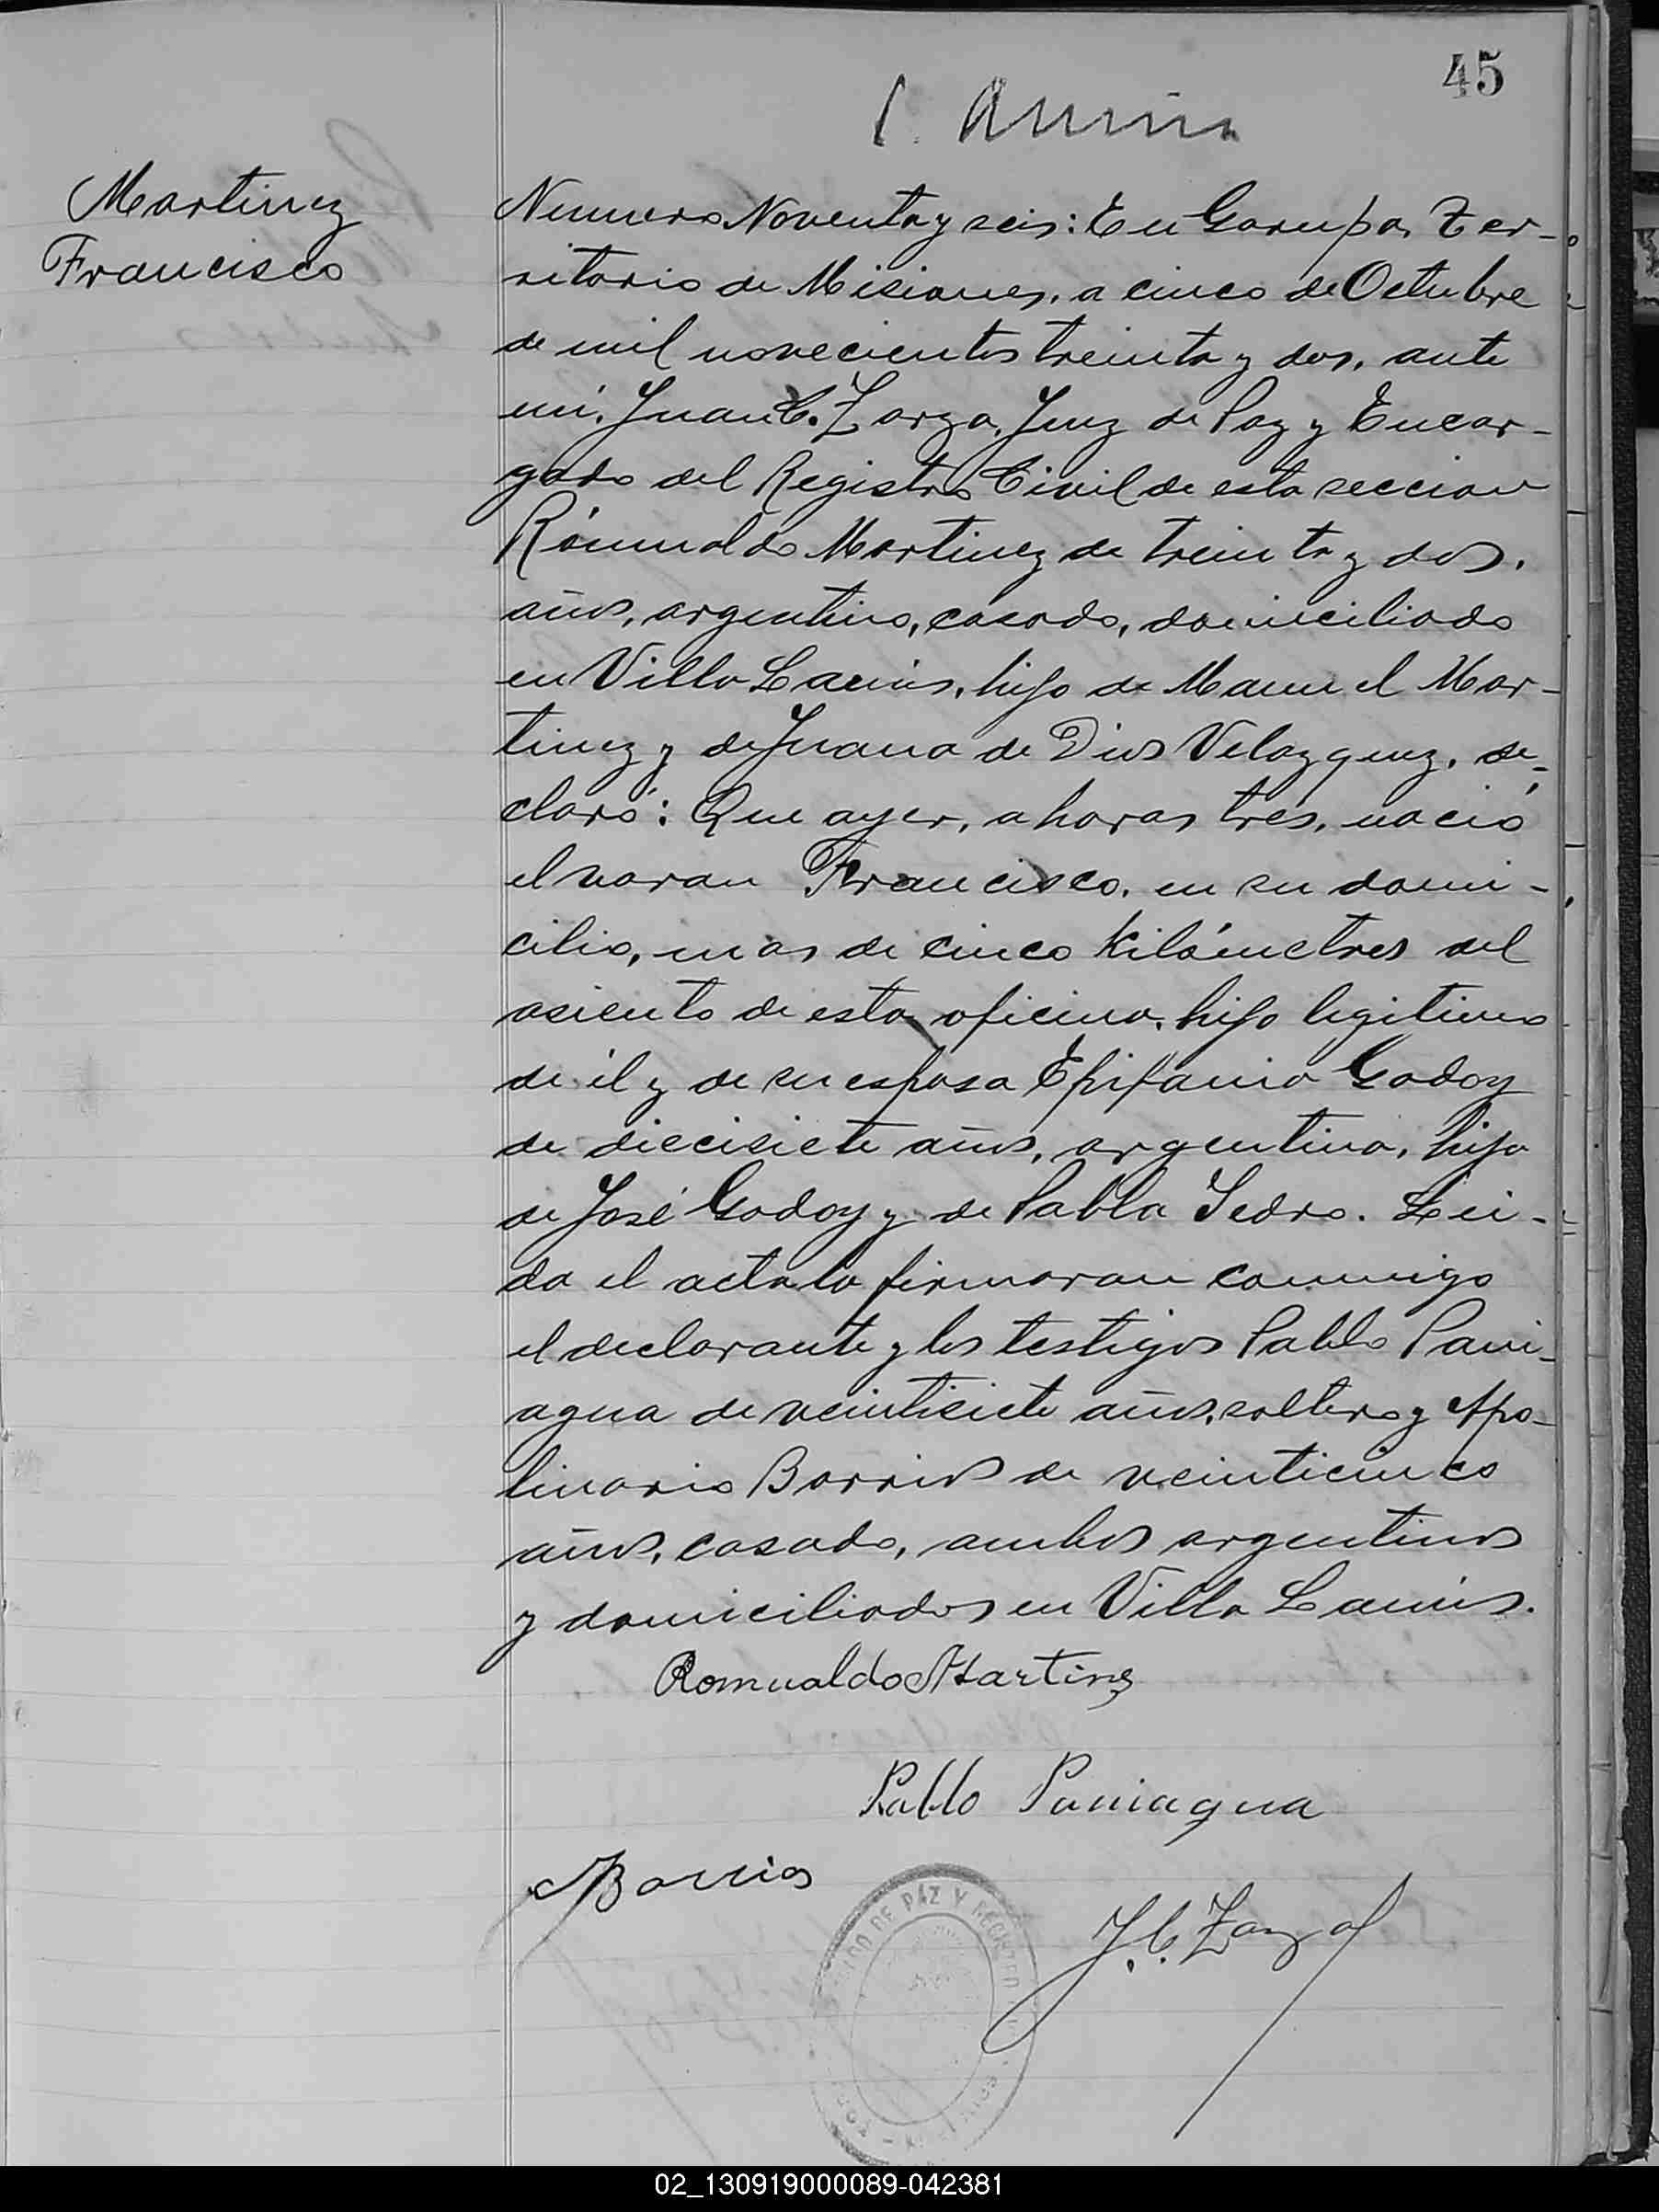 45
Martinez
Francisco
Numero Noventa y seis: En Garupa, Ter-
ritorio de Misiones, a cinco de Octubre
de mil novecientos treinta y dos, ante
mi, Juan C. Zarza, Juez de Paz y Encar-
gado del Registro Civil de esta seccion
Rómualdo Martinez de treinta y dos,
años, argentino, casado, domiciliado
en Villa Lanús, hijo de Manuel Mar-
tinez y de Juana de Dios Velazquez, de-
claró: Que ayer, a horas tres, nació
el varon Francisco, en su domi-
cilio, mas de cinco Kilómetres del
asiento de esta oficina, hijo legitimo
de él y de su esposa Epifania Godoy
de diecisiete años, argentina, hija
de José Godoy y de Pabla Sedro. Lei-
da el acta la firmaran conmigo
el declarante y los testigos Pablo Pani-
agua de veintisiete años, soltero y Apo-
linario Barrios de veinticinco
años, casado, ambos argentinos
y domiciliados en Villa Lanús.
Romualdo Martinez
Pablo Paniagua
ABarrios
J. C. Zarza
DE PAZ Y REGISTRO
02_130919000089-042381